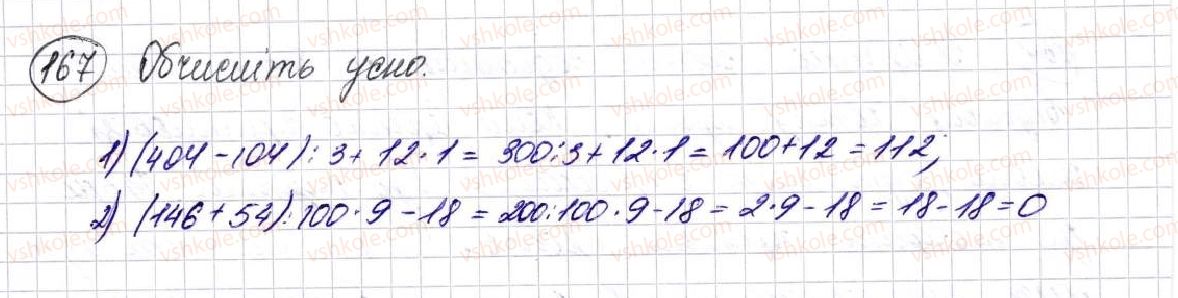 167 Обчисліть усно.
1) (404 - 104) : 3 + 12 · 1 = 300 : 3 + 12 · 1 = 100 + 12 = 112;
2) (146 + 54) : 100 · 9 - 18 = 200 : 100 · 9 - 18 = 2 · 9 - 18 = 18 - 18 = 0